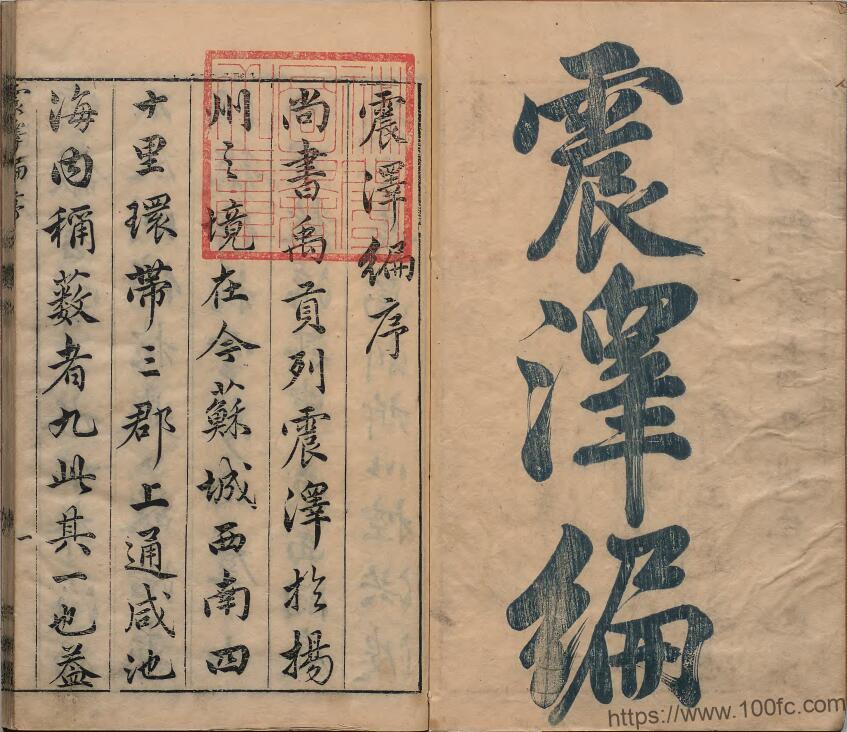 震澤編
震澤編序
尚書禹貢列震澤於揚
州之境在今蘇城西南四
十里環帶三郡上通咸池
海內稱藪者九此其一也益
震澤編序
一
https://www.100fc.com